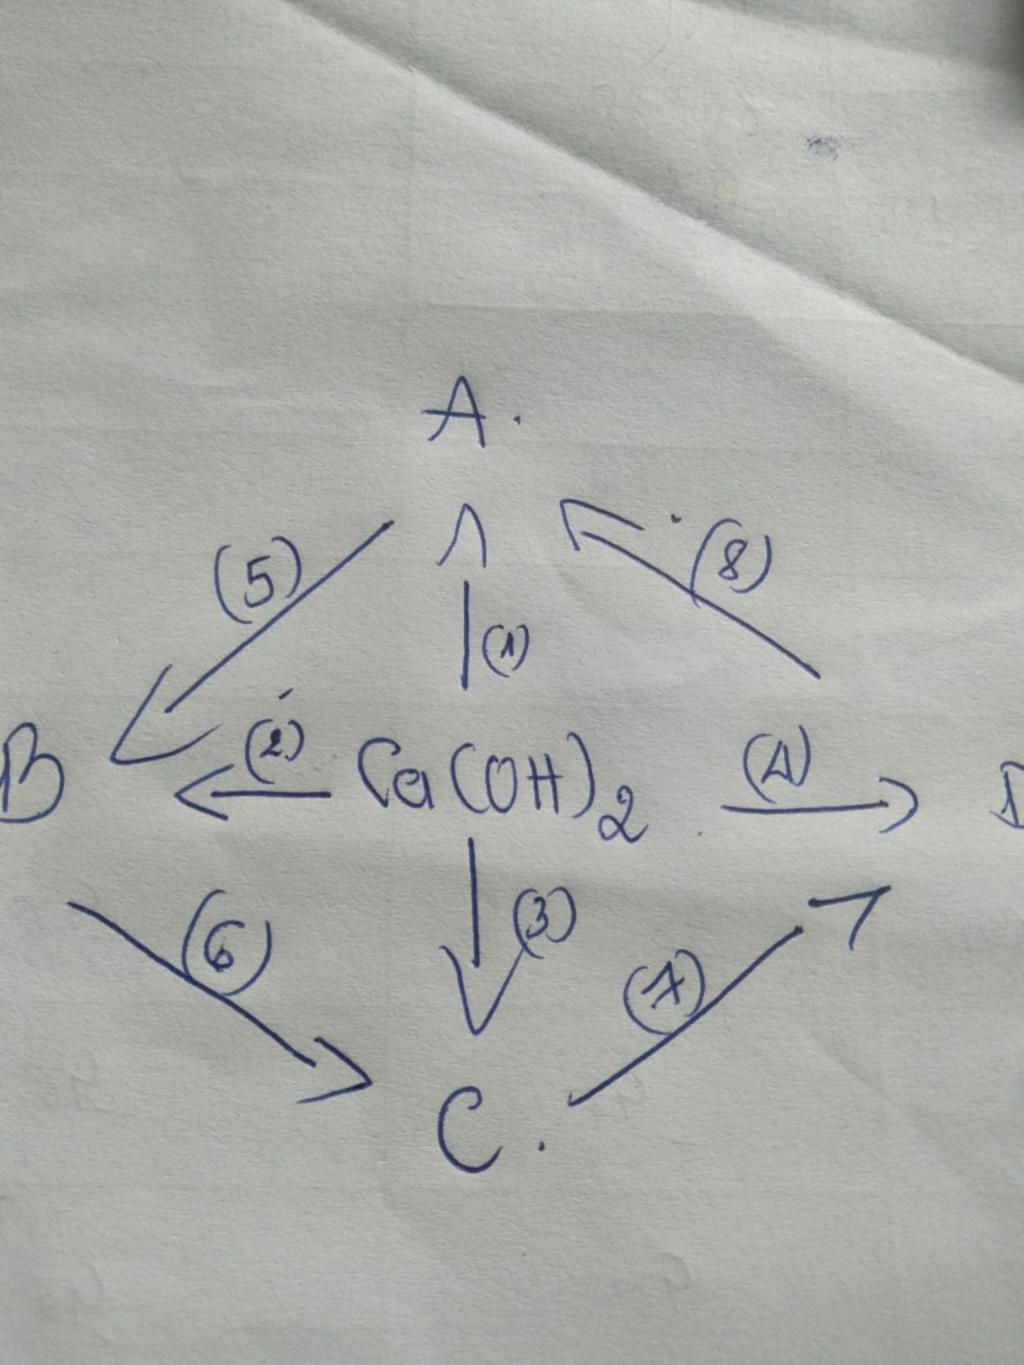 A.
(5) (8)
(1)
B (2) Ca(OH)₂ (4) D
(6) (3) (7)
C.